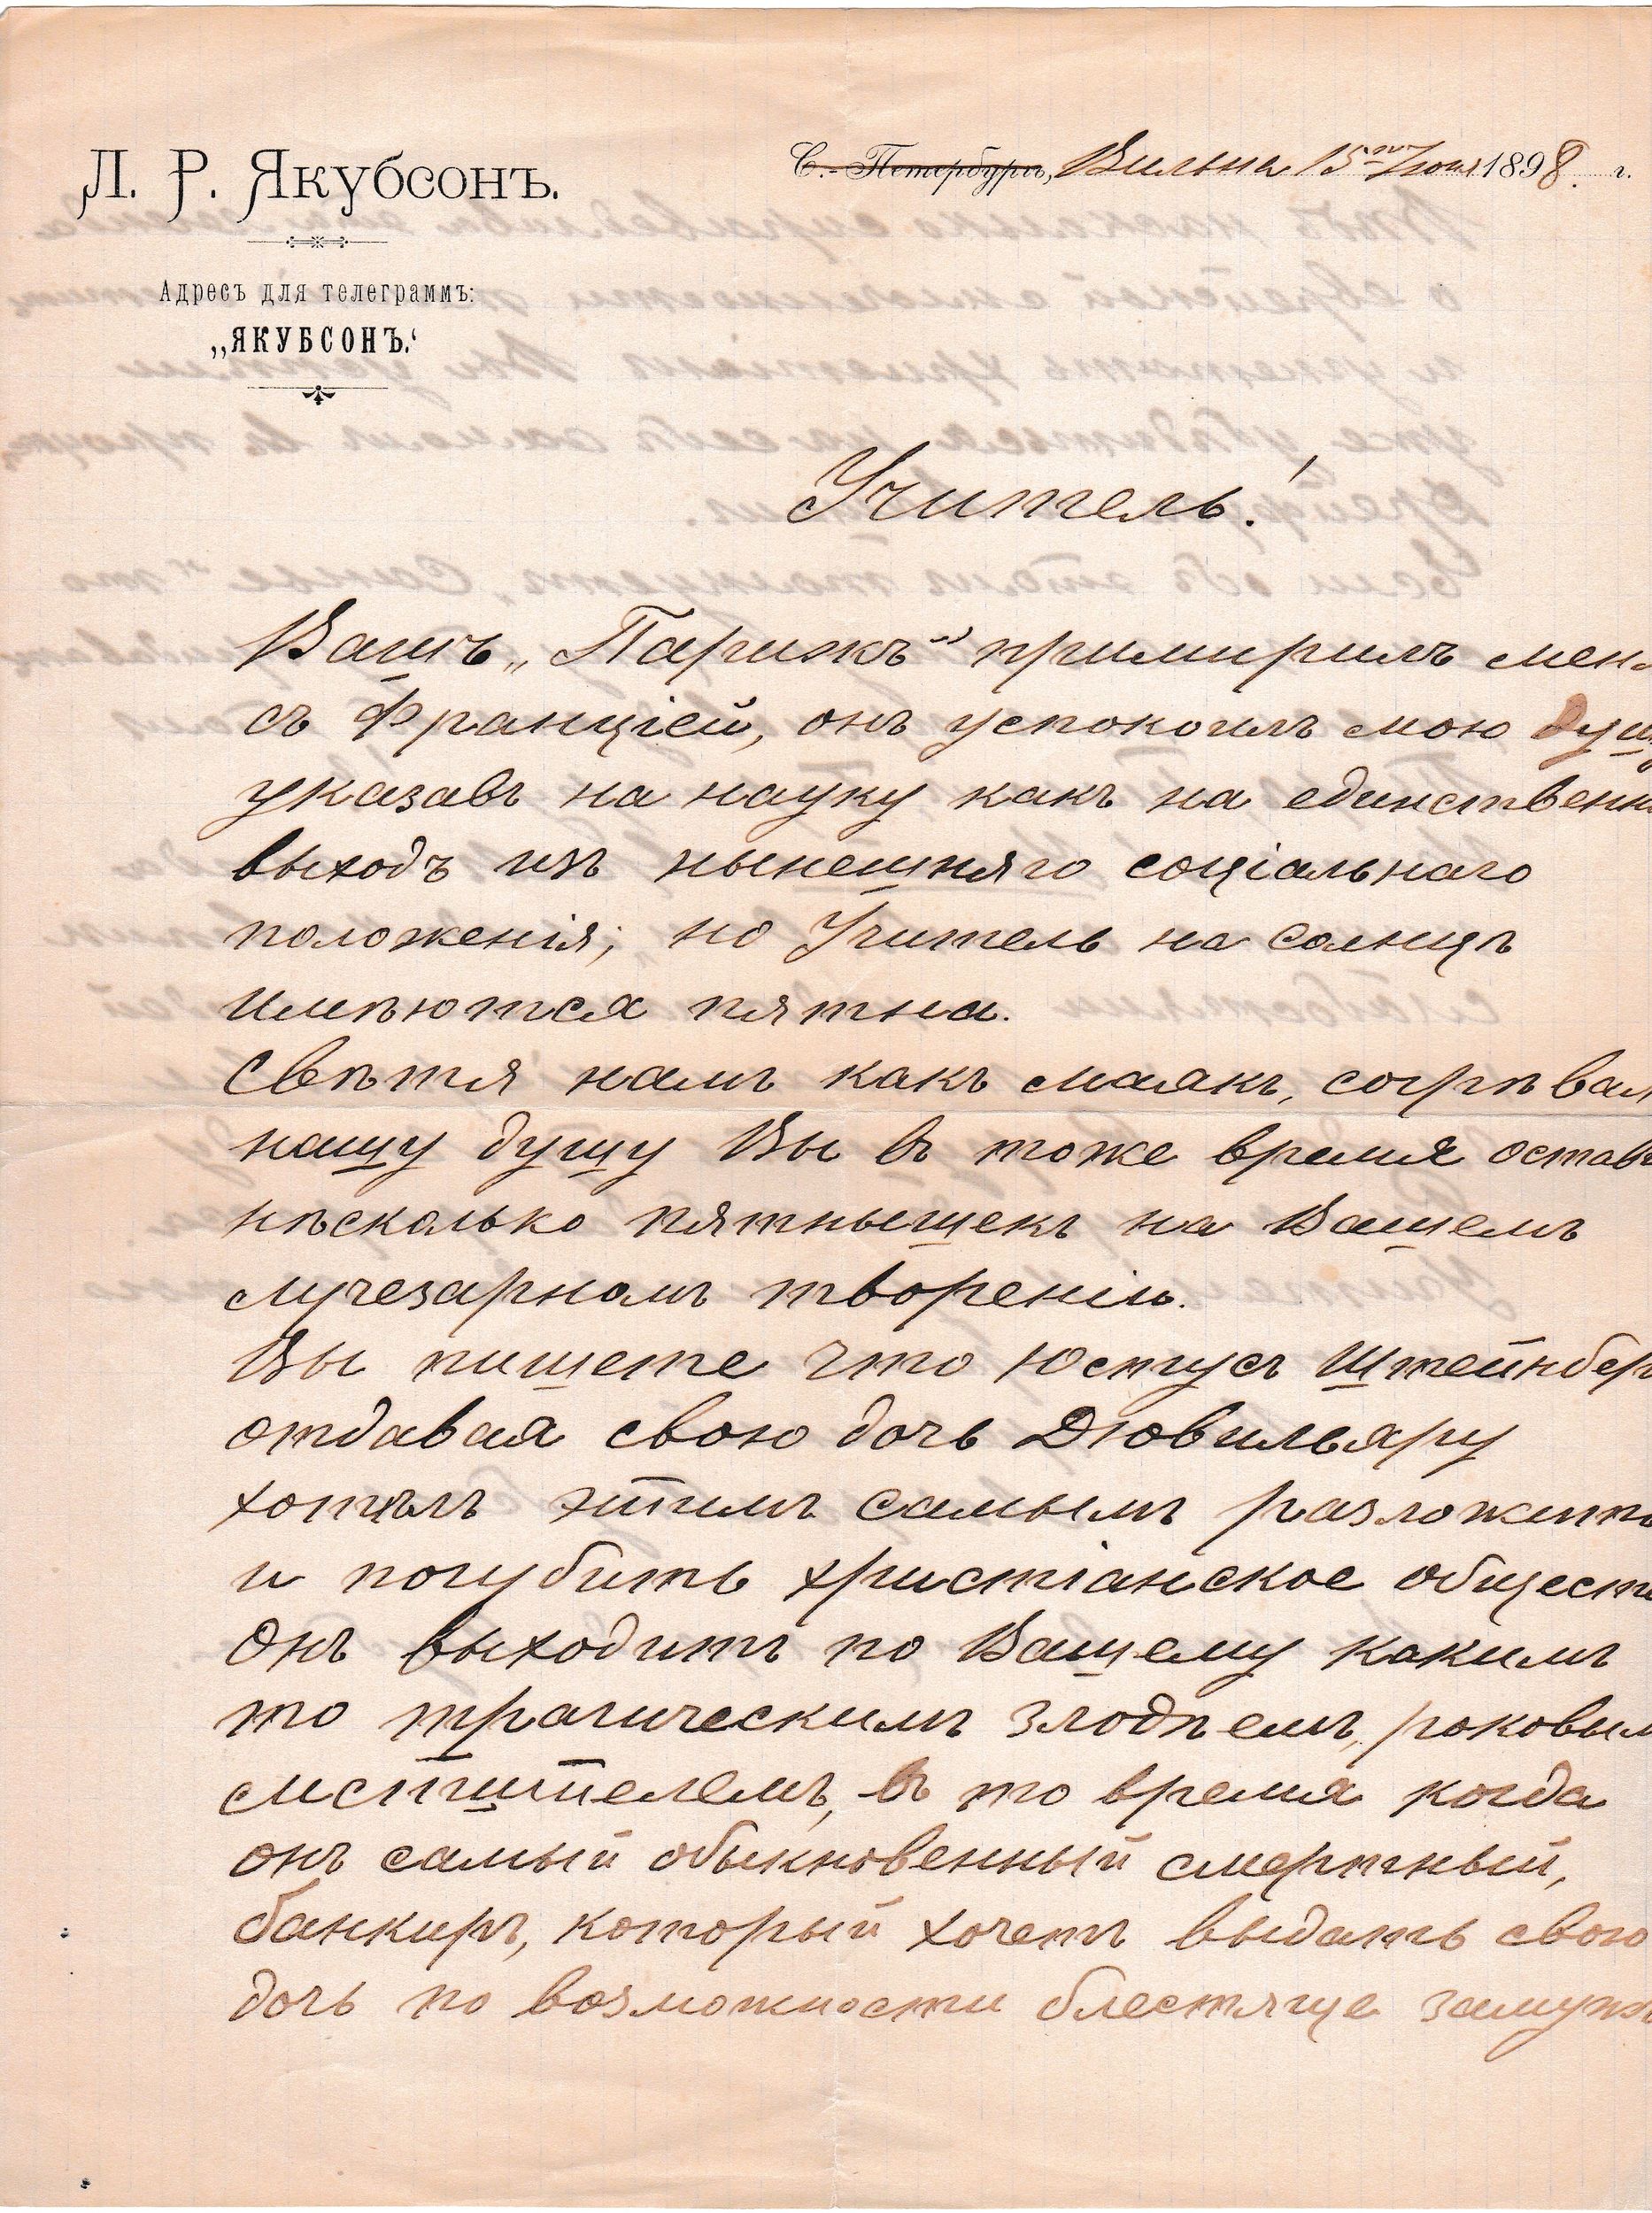 Л. Р. Якубсонъ.
С.-Петербургъ, Вильна 15го Іюня 1898. г.
Адресъ для телеграммъ:
„ЯКУБСОНЪ.“
Учитель!
Вашъ „Парижъ“ примирилъ мен
съ Франціей, онъ успокоилъ мою душ
указавъ на науку какъ на единствен
выходъ изъ нынешняго соціальнаго
положенія; но Учитель на солнцѣ
имѣются пятна.
Свѣтя намъ какъ маякъ, согрѣвая
нашу душу Вы въ тоже время остав
нѣсколько пятнышекъ на Вашемъ
лучезарномъ твореніи.
Вы пишете что Юстусъ Штейнбер
отдавая свою дочь Дювильяру
хотѣлъ этимъ самымъ разложить
и погубить христіанское общест
Онъ выходитъ по Вашему какимъ
то трагическимъ злодѣемъ, роковым
мстителемъ, въ то время когда
онъ самый обыкновенный смертный,
банкиръ, который хочетъ выдать свою
дочь по возможности блестяще замуж